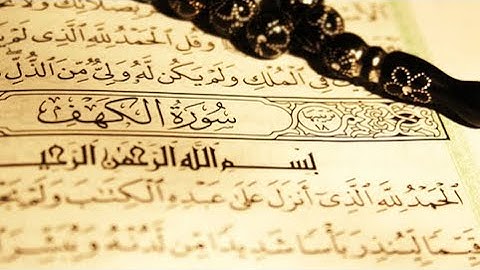 بِصَلَاتِكَ وَلَا
وَقُلِ ٱلْحَمْدُ لِلَّهِ ٱلَّذِى لَمْ
فِى ٱلْمُلْكِ وَلَمْ يَكُن لَّهُۥ وَلِىٌّ مِّنَ ٱلذُّلِّ
سُورَةُ الكَهْفِ
بِسْمِ ٱللَّهِ ٱلرَّحْمَٰنِ ٱلرَّحِيمِ
ٱلْحَمْدُ لِلَّهِ ٱلَّذِىٓ أَنزَلَ عَلَىٰ عَبْدِهِ ٱلْكِتَٰبَ وَلَمْ
قَيِّمًا لِّيُنذِرَ بَأْسًا شَدِيدًا مِّن لَّدُنْهُ وَيُبَشِّرَ